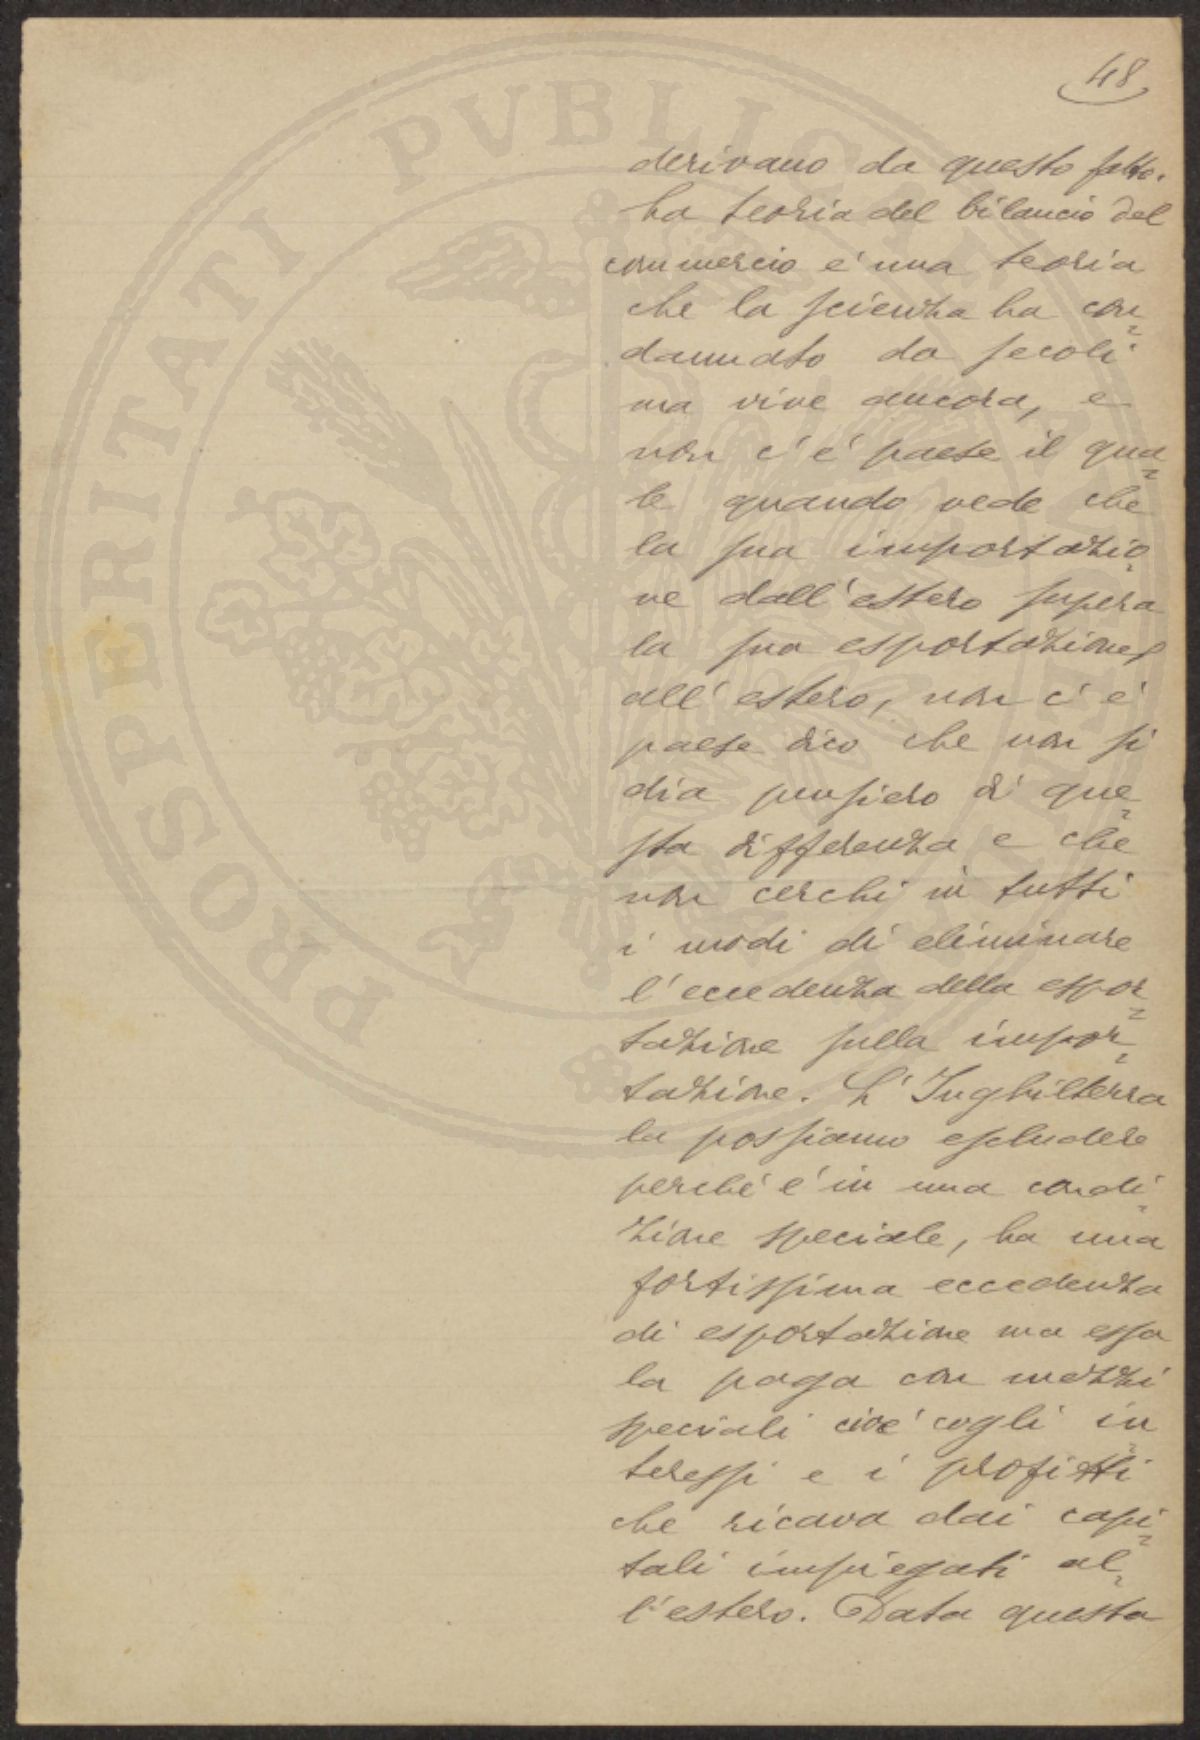 48
derivano da questo fatto.
La teoria del bilancio del
commercio e' una teoria
che la scienza ha con=
dannato da secoli
ma vive ancora, e
non c'e' paese il qua=
le quando vede che
la sua importazio=
ne dall'estero supera
la sua esportazione
all'estero, non c'e'
paese dico che non si
dia pensiero di que=
sta differenza e che
non cerchi in tutti
i modi di eliminare
l'eccedenza della espor=
tazione sulla impor=
tazione. L'Inghilterra
la possiamo escludere
perche' e' in una condi=
zione speciale, ha una
fortissima eccedenza
di esportazione ma essa
la paga con mezzi
speciali cioe' cogli in=
teressi e i profitti
che ricava dai capi=
tali impiegati al=
l'estero. Data questa
PROSPERITATI PVBLICAE